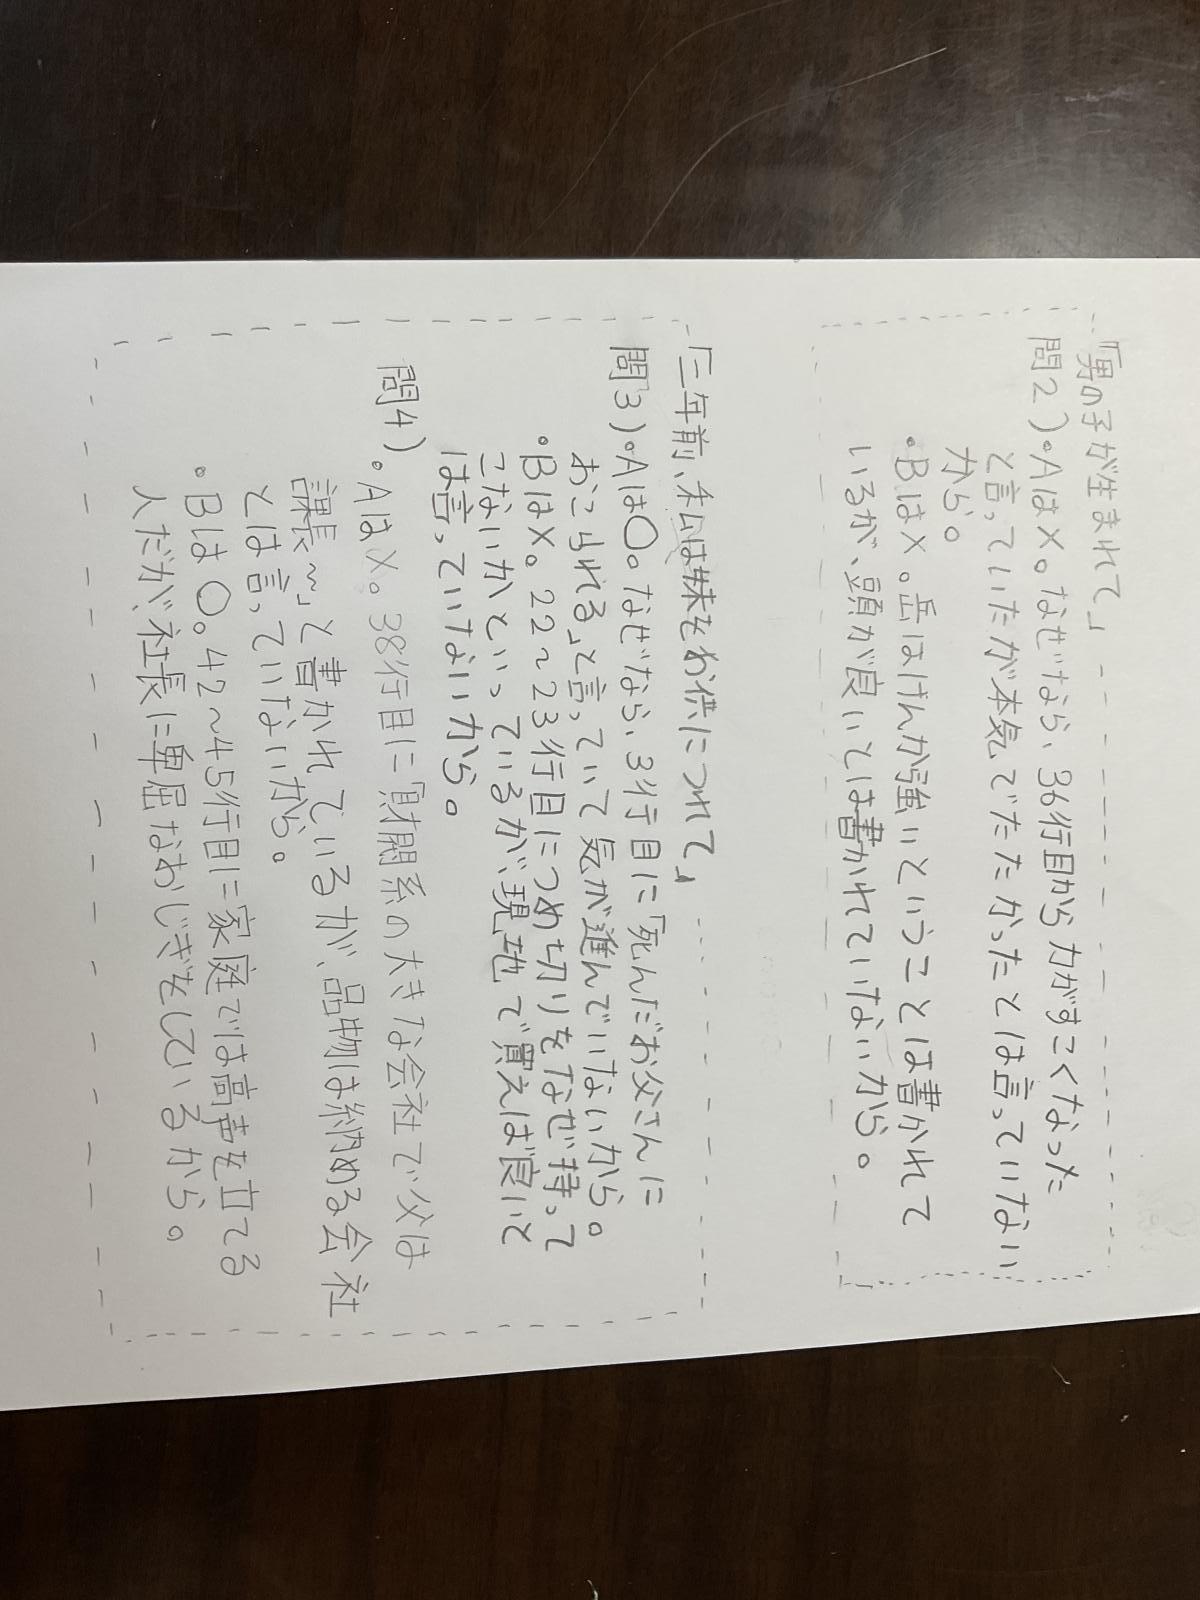 「男の子が生まれて」
問2)・Aは×。なぜなら、36行目から力がすごくなった
と言っていたが本気でたたかったとは言っていない
から。
・Bは×。岳はけんか強いということは書かれて
いるが、頭が良いとは書かれていないから。
「三年前、私は妹をお供につれて」
問3)・Aは○。なぜなら、3行目に「死んだお父さんに
おこられる」と言っていて気が進んでいないから。
・Bは×。22〜23行目につめ切りをなぜ持って
こないかといっているが、現地で買えば良いと
は言っていないから。
問4)・Aは×。38行目に「財閥系の大きな会社で父は
課長〜」と書かれているが、品物は納める会社
とは言っていないから。
・Bは○。42〜45行目に家庭では高声を立てる
人だが、社長に卑屈なおじぎをしているから。